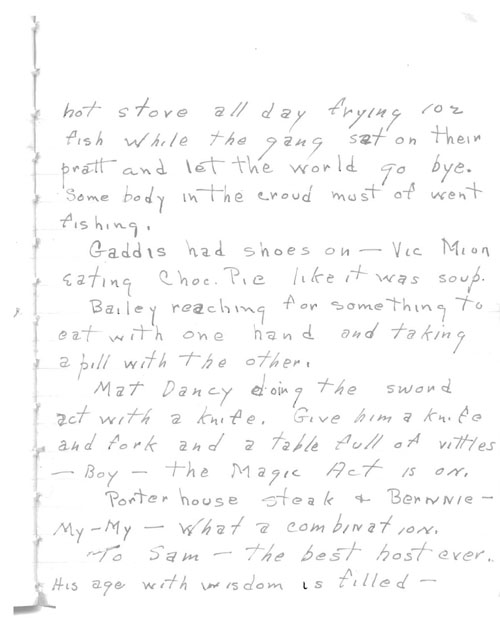 hot stove all day frying 102
fish while the gang sat on their
pratt and let the world go bye.
Some body in the croud must of went
fishing.
Gaddis had shoes on — Vic Mion
eating Choc. Pie like it was soup.
Bailey reaching for something to
eat with one hand and taking
a pill with the other.
Mat Dancy doing the sword
act with a knife. Give him a knife
and fork and a table full of vittles
— Boy — the Magic Act is on.
Porter house steak & Bernnie —
My-My — What a combination.
To Sam — the best host ever.
His age with wisdom is filled —